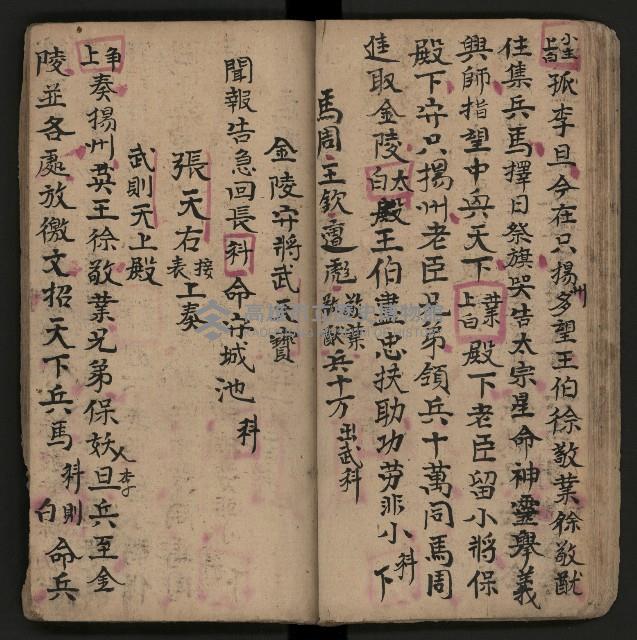 小主上白 孤李旦今在只揚州多望王伯徐敬葉徐敬猷
住集兵馬擇日祭旗哭告太宗星命神灵舉義
興師指望中兴天下 葉上白 殿下老臣留小將保
殿下守只揚州老臣兄弟領兵十萬同馬周
進取金陵 太白 殿王伯盡忠扶助功劳非小 科 下
馬周王欽遭彪 敬葉敬猷 兵十万 出武科
金陵守將武王寶
聞報告急回長 科 命守城池 科
張天右 接表 上奏
武則天上殿
争上 奏揚州英王徐敬葉兄弟保妖人李旦兵至金
陵並各處放檄文招天下兵馬 科 則白 命兵
高雄市立歷史博物館
KAOHSIUNG MUSEUM OF HISTORY